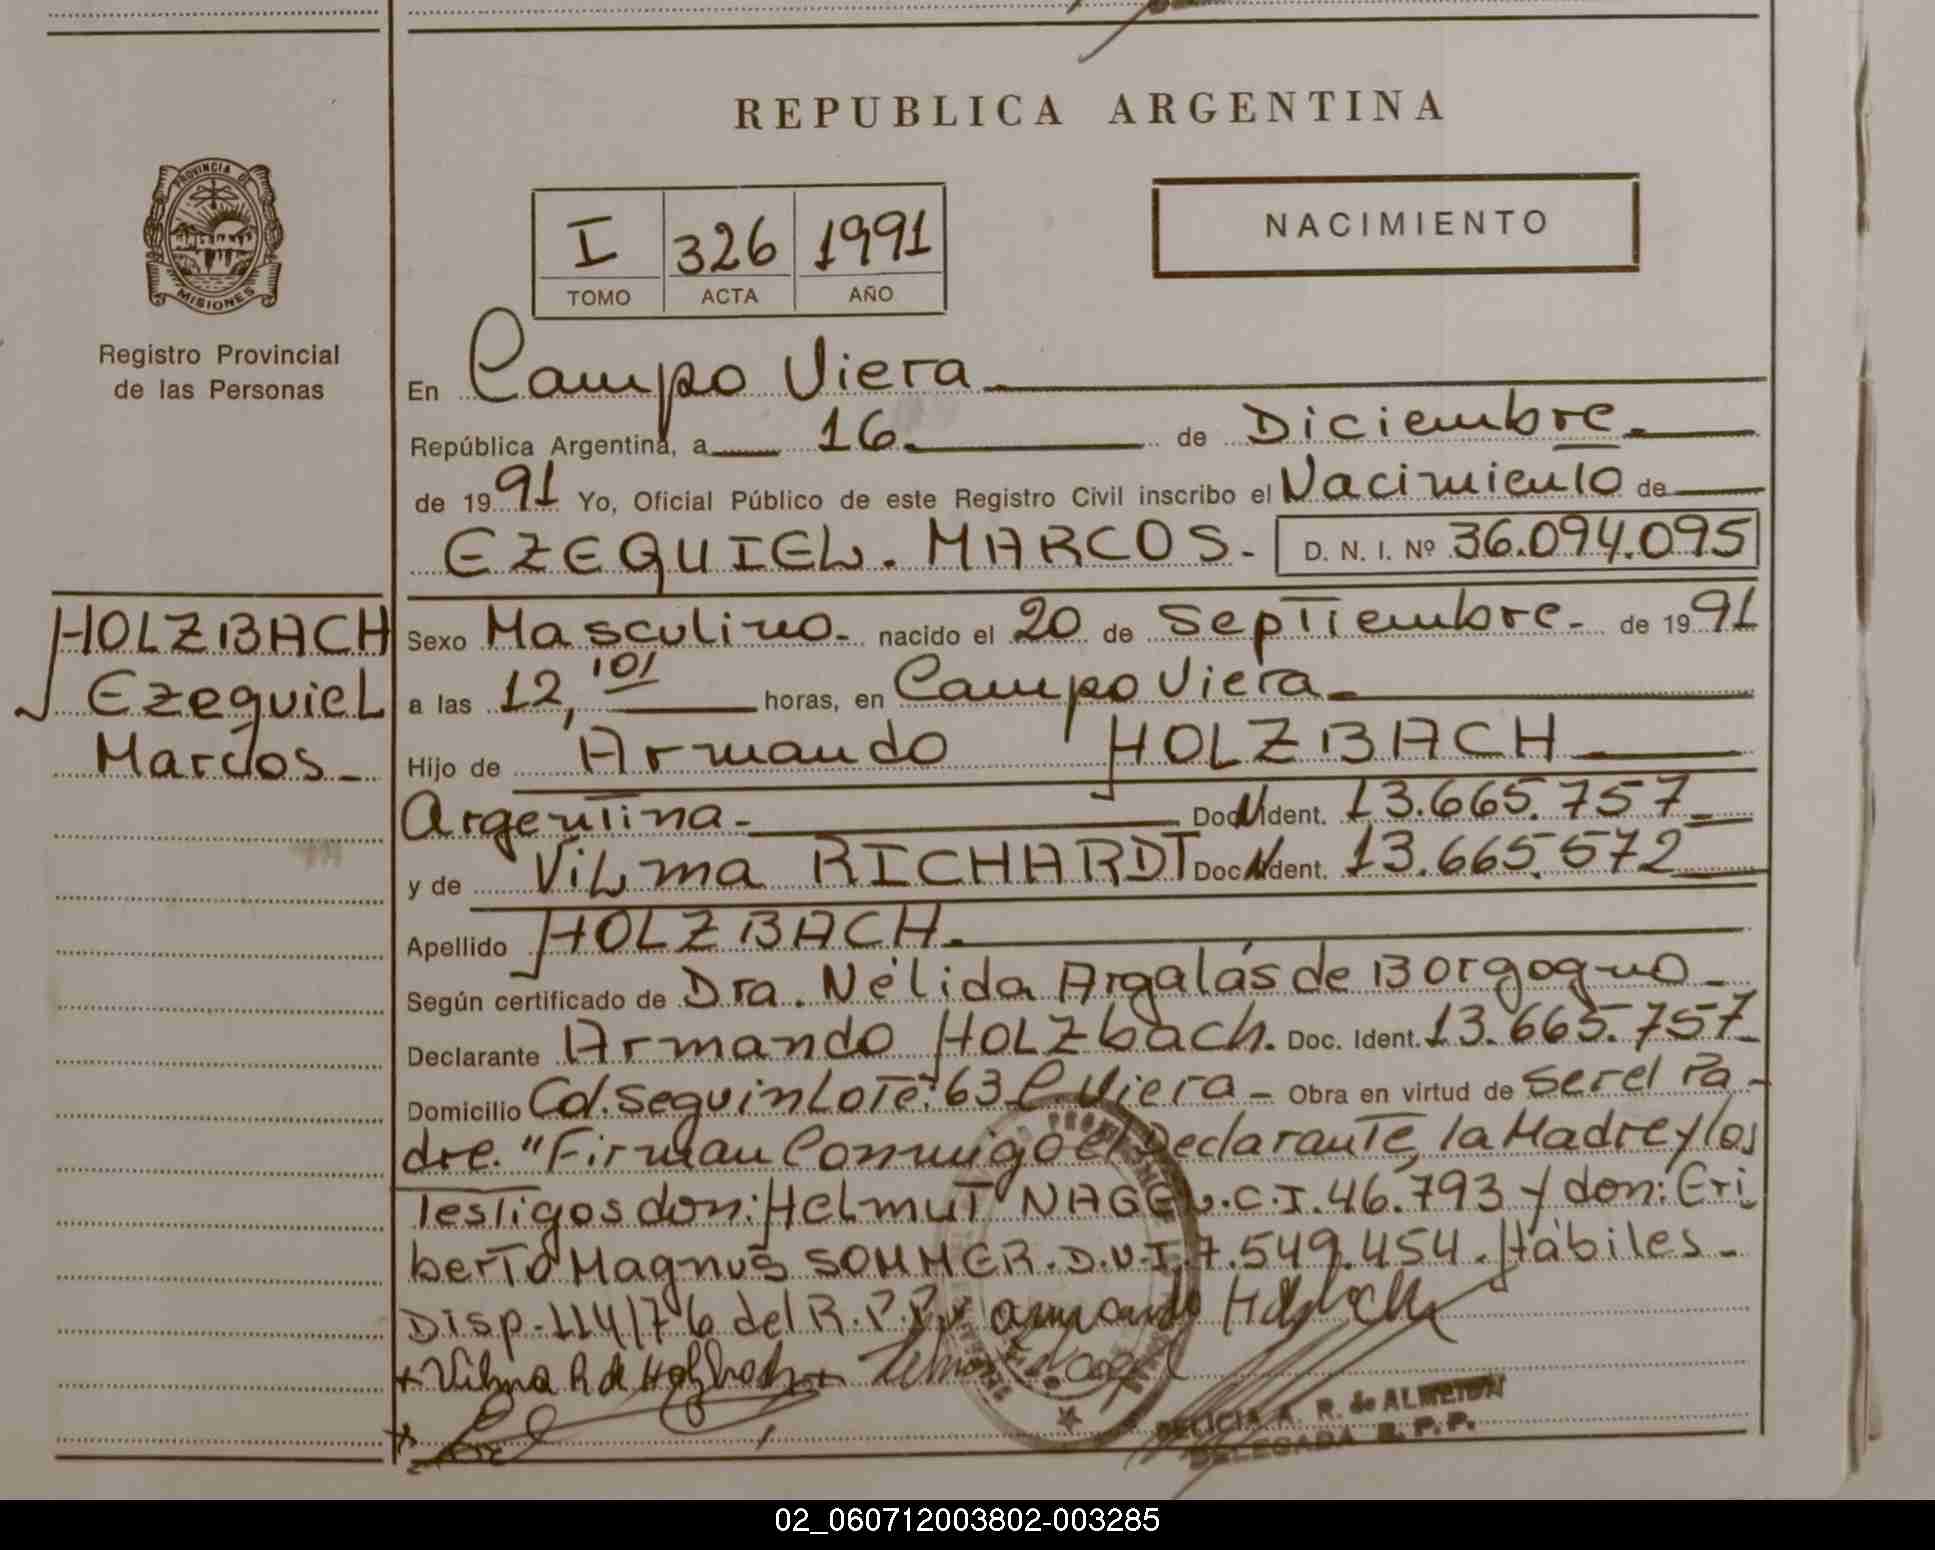 REPUBLICA ARGENTINA
PROVINCIA DE
MISIONES
Registro Provincial
de las Personas
I 326 1991
TOMO ACTA AÑO
NACIMIENTO
En Campo Viera
República Argentina, a 16 de Diciembre
de 1991 Yo, Oficial Público de este Registro Civil inscribo el Nacimiento de
EZEQUIEL. MARCOS - D. N. I. Nº 36.094.095
HOLZBACH
Ezequiel
Marcos -
Sexo Masculino - nacido el 20 de Septiembre - de 1991
a las 12,'01' horas, en Campo Viera
Hijo de Armando HOLZBACH
Argentina - Doc. Ident. 13.665.757
y de Vilma RICHARDT Doc. Ident. 13.665.572
Apellido HOLZBACH.
Según certificado de Dra. Nélida Argalás de Borgogno -
Declarante Armando HOLZbach. Doc. Ident. 13.665.757
Domicilio Cd. Seguin Lote: 63 C. Viera - Obra en virtud de ser el Pa-
dre. "Firman Conmigo el Declarante, la Madre y los
Testigos don: Helmut NAGEL. C.I. 46.793 y don: Eri
berto Magnus SOMMER. D.N.I. 7.549.454. Hábiles -
Disp. 114/76 del R.P.P. Armando Holzbach
+ Vilma R de Holzbach
DELICIA A. R. de ALMEIDA
DELEGADA R. P. P.
02_060712003802-003285